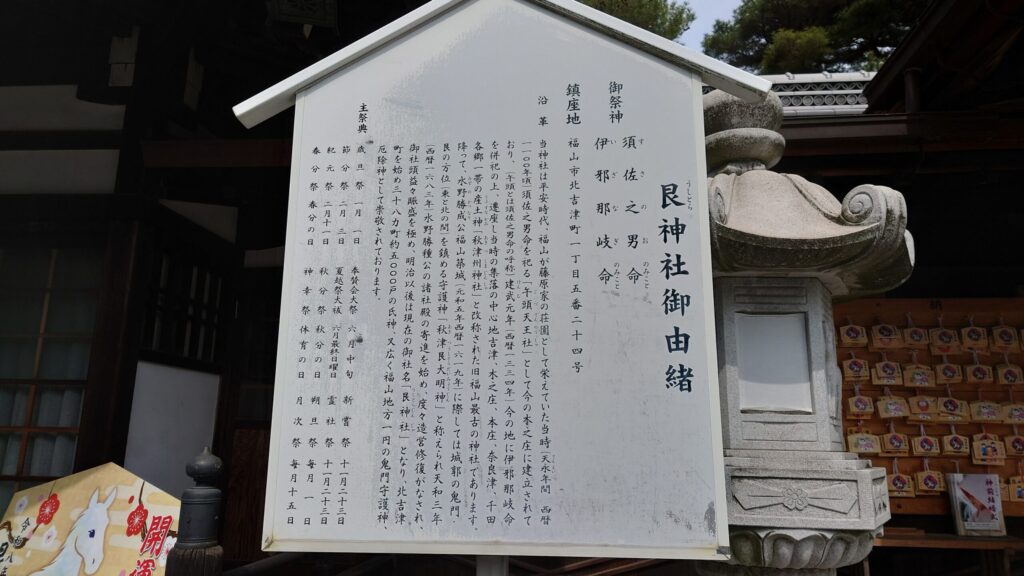 艮神社御由緒
うしとら
御祭神
須佐之男命
すさのおのみこと
伊邪那岐命
いざなぎのみこと
鎮座地 福山市北吉津町一丁目五番二十四号
沿革
当神社は平安時代、福山が藤原家の荘園として栄えていた当時(天永年間 西暦
一一〇〇年頃)須佐之男命を祀る「午頭天王社」として今の本之庄に建立されて
おり、(午頭とは須佐之男命の呼称)建武元年(西暦一三三四年)今の地に伊邪那岐命
を併祀の上、遷座し当時の集落の中心地吉津・木之庄、本庄・奈良津、千田
各郷一帯の産土神「秋津州神社」と改称された旧福山最古の神社であります。
降って、水野勝成公福山築城(元和五年西暦一六一九年)に際しては城郭の鬼門
艮の方位(東と北の間)を鎮める守護神「秋津艮大明神」と称えられ天和三年
(西暦一六八三年)水野勝種公の諸社殿の寄進を始め、度々造営修復がなされ、
御社頭益々賑盛を極め、明治以後は現在の御社名「艮神社」となり、北吉津
町を始め三十八ヵ町約五〇〇〇戸の氏神、又広く福山地方一円の鬼門守護神、
厄除神として崇敬されております。
主祭典
歳旦祭 一月一日
節分祭 二月三日
紀元祭 二月十一日
春分祭 春分の日
奉賛会大祭 六月中旬
夏越祭大祓 六月最終日曜日
秋分祭 秋分の日
神幸祭 体育の日
新嘗祭 十一月二十三日
霊社祭 十一月二十三日
朔旦祭 毎月一日
月次祭 毎月十五日
開運